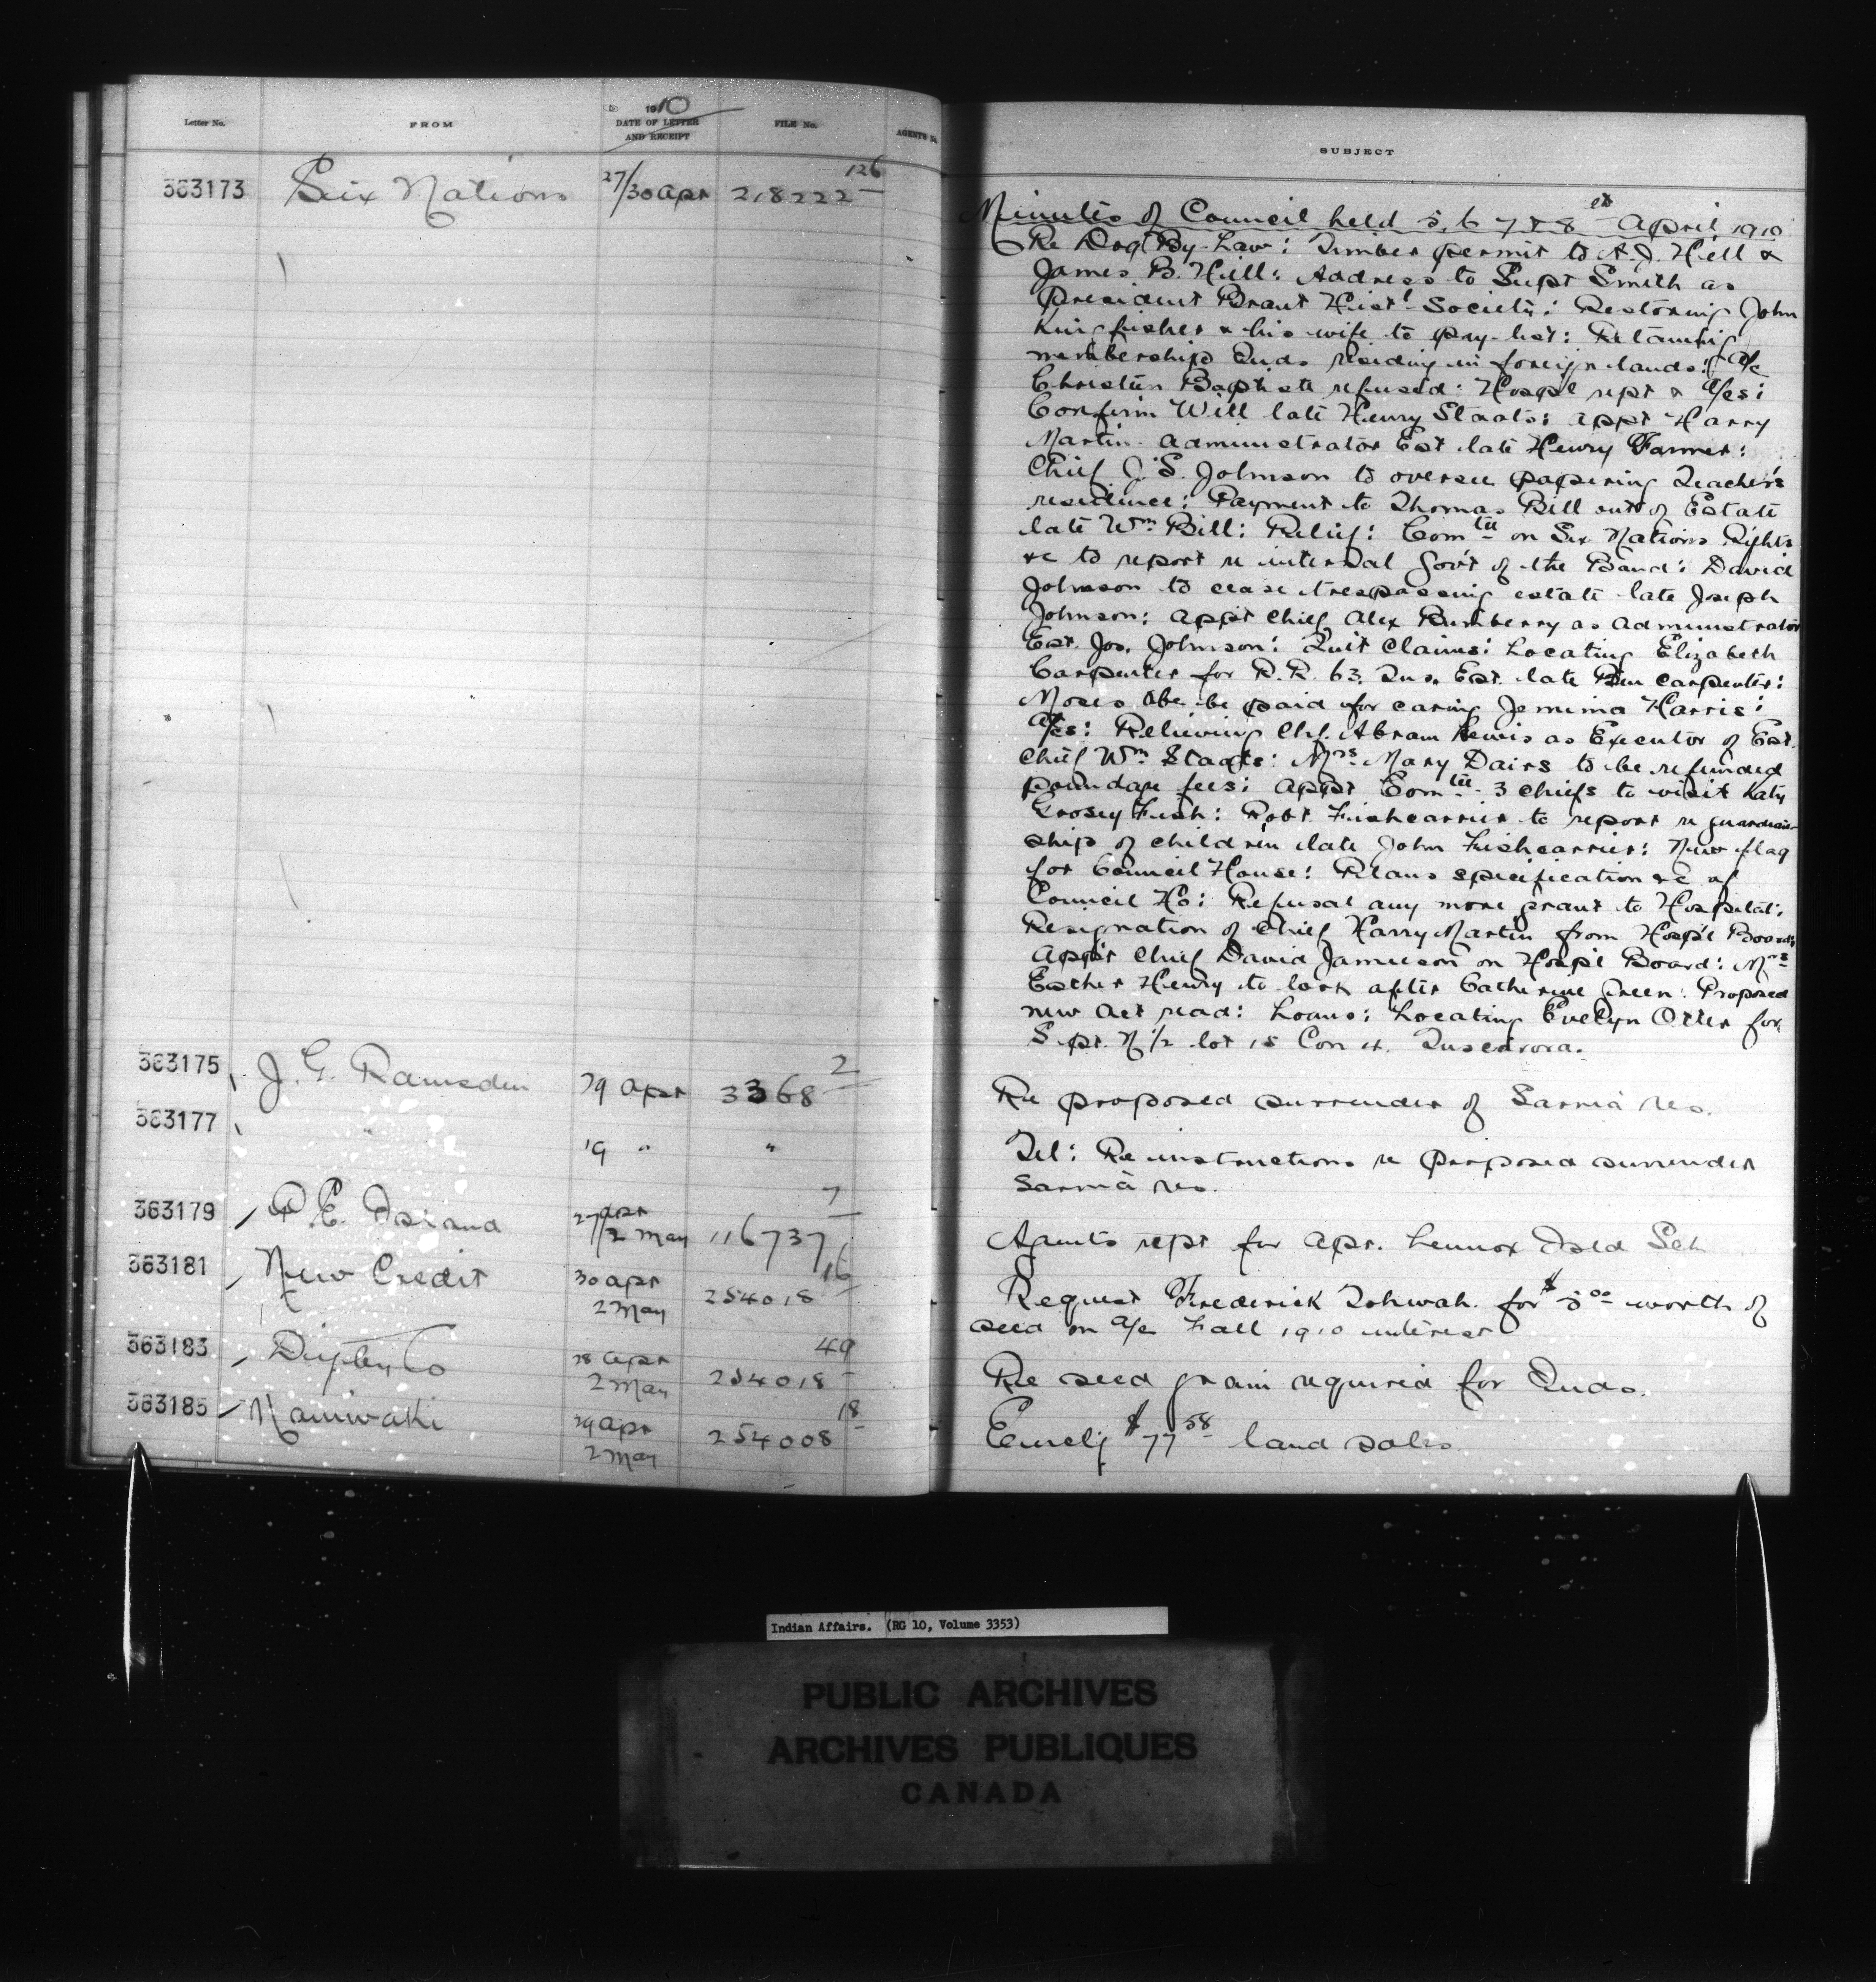 Letter No. FROM 1910 DATE OF LETTER AND RECEIPT FILE No. AGENTS No. SUBJECT
363173 Six Nations 27/30 apr 218222 126
Minutes of Council held 5, 6 7 & 8th April 1910
Re Dog By-Law: Timber permit to A.J. Hill &
James B. Hill: Address to Supt Smith as
President Brant Hist'l Society: Restoring John
Kingfisher & his wife to pay-list: Retaining
membership Inds residing in foreign lands: a/c
Christin Baptiste refused: Hospl rept & a/cs:
Confirm Will late Henry Staats: appt Harry
Martin administrator Est late Henry Farmer:
Chief J.S. Johnson to oversee papering Teacher's
residence: Payment to Thomas Bill out of Estate
late Wm Bill: Relief: Comtee on Six Nations Rights
&c to report re internal Gov't of the Band: David
Johnson to cease trespassing estate late Joseph
Johnson: appt Chief Alex Bumberry as administrator
Est. Jos. Johnson: Quit Claims: Locating Elizabeth
Carpenter for R.R. 63. Tus. Est. late Ben Carpenter:
Moses be paid for caring Jemima Harris:
a/cs: Relieving Chf. Abram Lewis as Executor of Est.
Chief Wm Staats: Mrs Mary Davis to be refunded
poundage fees: appt Comtee 3 chiefs to visit Katy
Fish: Robt. Fishcarrier to report re guardian-
ship of children late John Fishcarrier: New flag
for Council House: Plans specification &c of
Council Ho: Refusal any more grant to Hospital:
Resignation of Chief Harry Martin from Hosp'l Board:
App't Chief David Jamieson on Hosp'l Board: Mrs
Esther Henry to look after Catherine Green: Proposed
new act read: Loans: Locating Evelyn Otter for
S. pt. N 1/2 lot 15 Con 4. Tuscarora.
363175 J. G. Ramsden 29 apr 3368 2 Re proposed surrender of Sarnia res.
363177 " 19 " " Tel: Re instructions re proposed surrender
Sarnia res.
363179 P. E. 27 apr/2 May 116737 7 Agents rept for apr. Lennox Isld Sch
363181 New Credit 30 apr 2 May 254018 16 Request Frederick Tobwah. for $5.00 worth of
seed on a/c Fall 1910 interest
363183 Digby Co 28 apr 2 May 254018 49 Re seed grain required for Inds.
363185 Maniwaki 29 apr 2 May 254008 18 Enclg $77.58 land sales.
Indian Affairs. (RG 10, Volume 3353)
PUBLIC ARCHIVES
ARCHIVES PUBLIQUES
CANADA